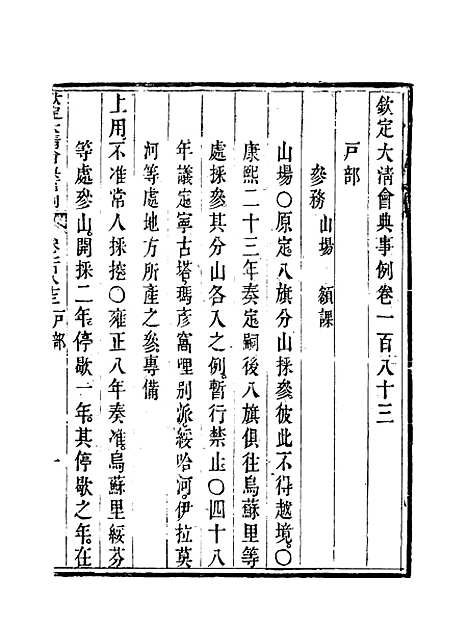 欽定大淸會典事例卷一百八十三
戸部
參務 山場 額課
山場○原定八旗分山採參彼此不得越境○
康熙二十三年奏定嗣後八旗俱往烏蘇里等
處採參其分山各入之例暫行禁止○四十八
年議定寧古塔瑪彥窩哩別派綏哈河伊拉莫
河等處地方所產之參專備
上用不准常人採挖○雍正八年奏准烏蘇里綏芬
等處參山開採二年停歇一年其停歇之年在
戸部
一